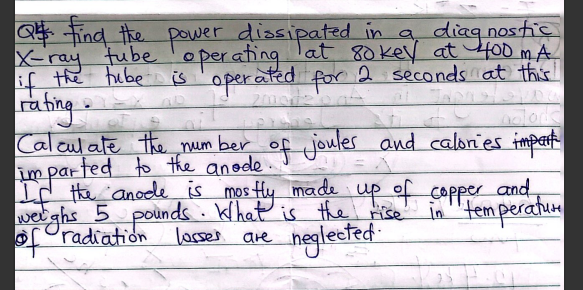 Q4 find the power dissipated in a diagnostic
X-ray tube operating at 80 keV at 400 mA
if the tube is operated for 2 seconds at this
rating.
Calculate the number of joules and calories impart
imparted to the anode.
If the anode is mostly made up of copper and
weighs 5 pounds. What is the rise in temperature
of radiation losses are neglected.